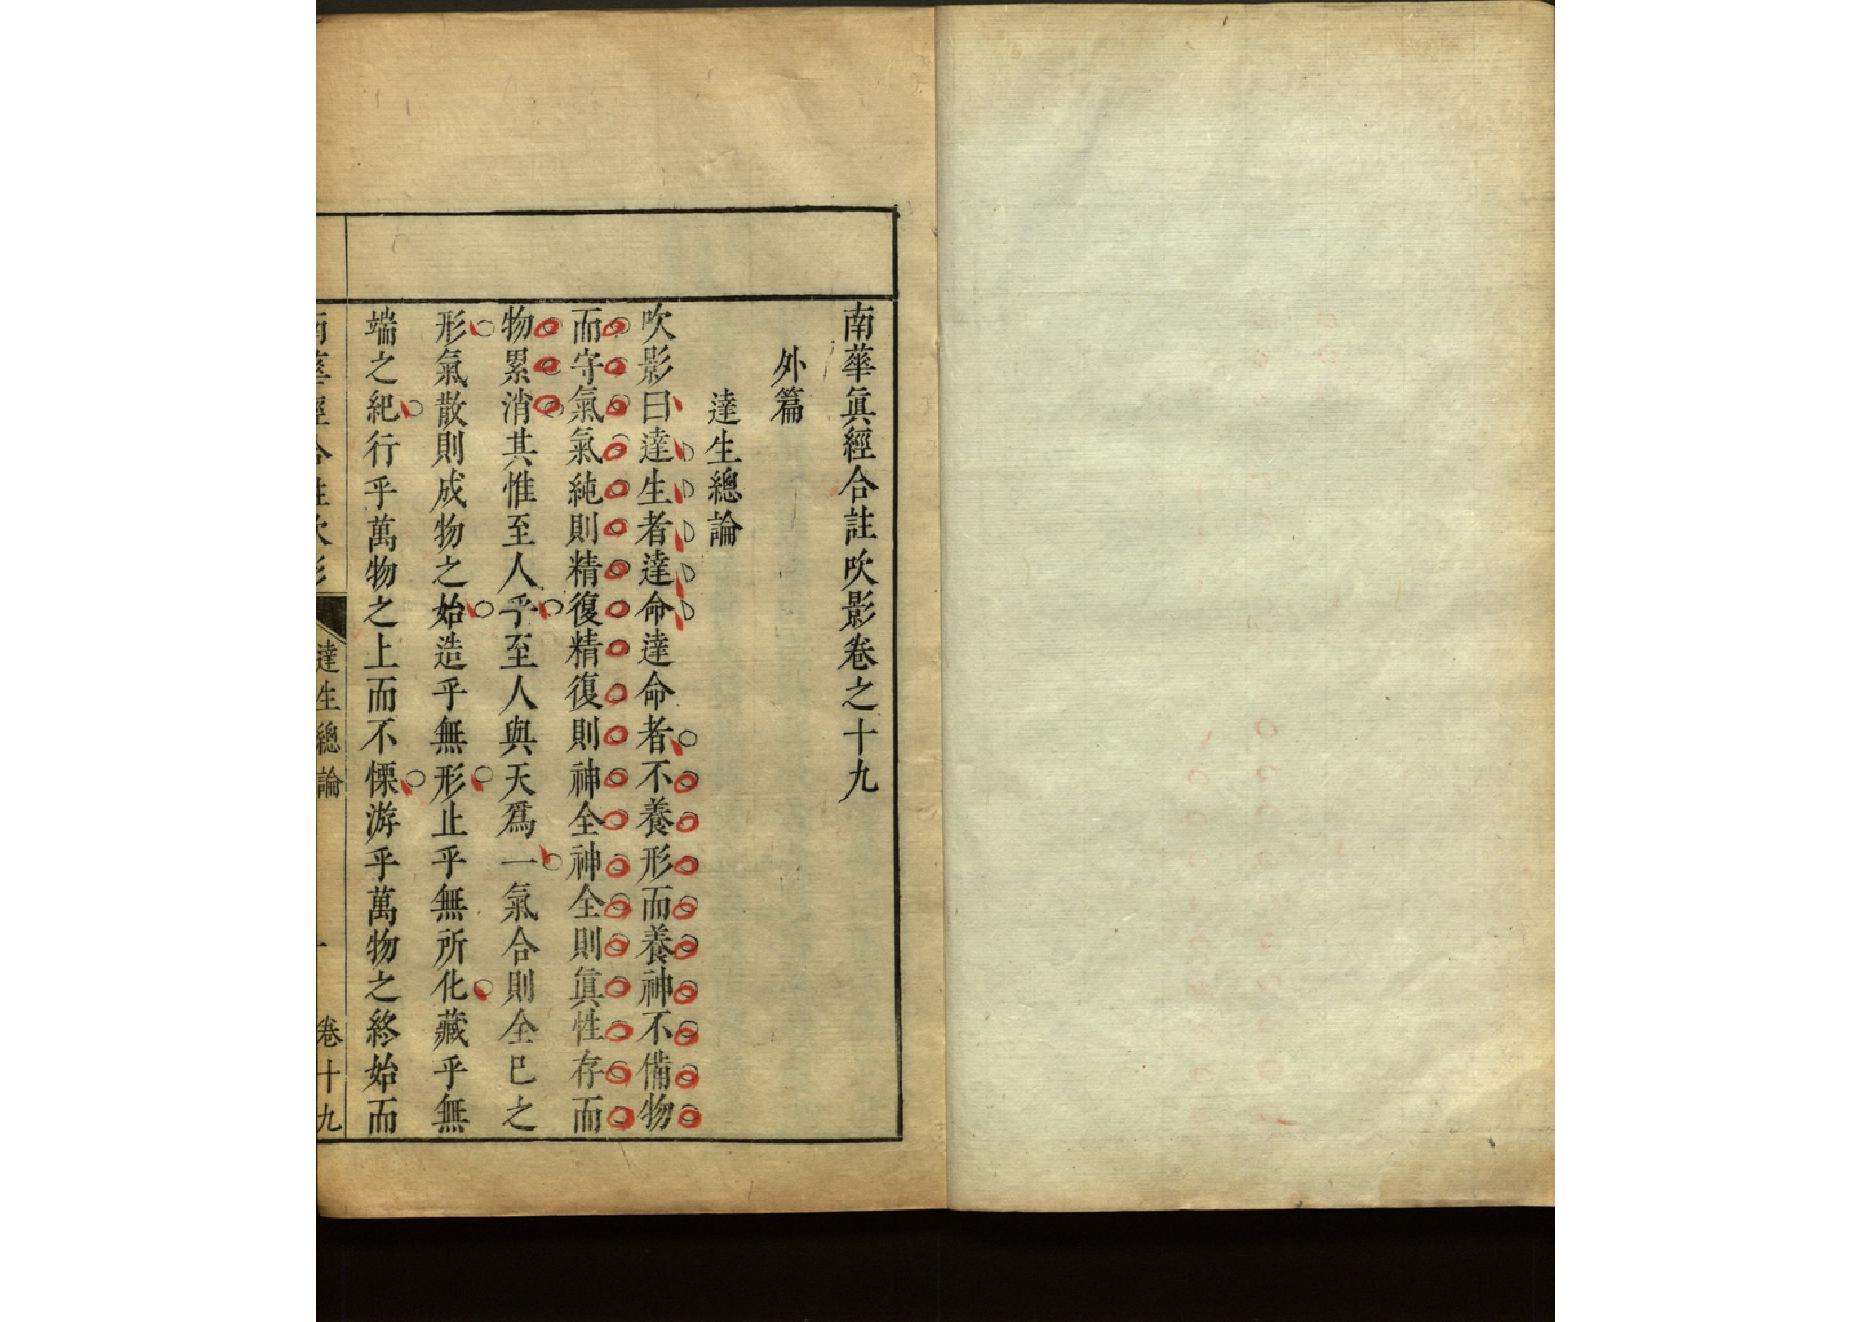 南華眞經合註吹影卷之十九
外篇
達生總論
吹影曰達生者達命達命者不養形而養神不備物
而守氣氣純則精復精復則神全神全則眞性存而
物累消其惟至人乎至人與天爲一氣合則全巳之
形氣散則成物之始造乎無形止乎無所化藏乎無
端之紀行乎萬物之上而不慄游乎萬物之終始而
南華經合註吹影
達生總論
一
卷十九